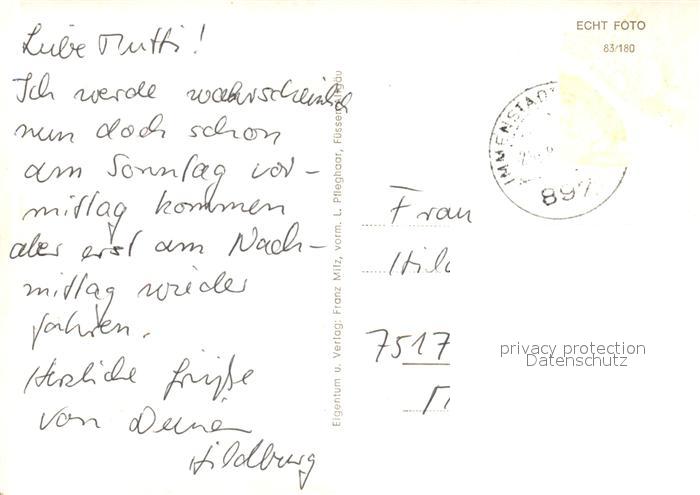 Liebe Mutti!
Ich werde wahrscheinlich
nun doch schon
am Sonntag vor-
mittag kommen
aber erst am Nach-
mittag wieder
fahren.
Herzliche Grüße
von Deiner
Hildburg
Eigentum u. Verlag: Franz Milz, vorm. L. Pfleghaar, Füssen Allgäu
ECHT FOTO
83/180
IMMENSTADT
897
Frau
7517
privacy protection
Datenschutz